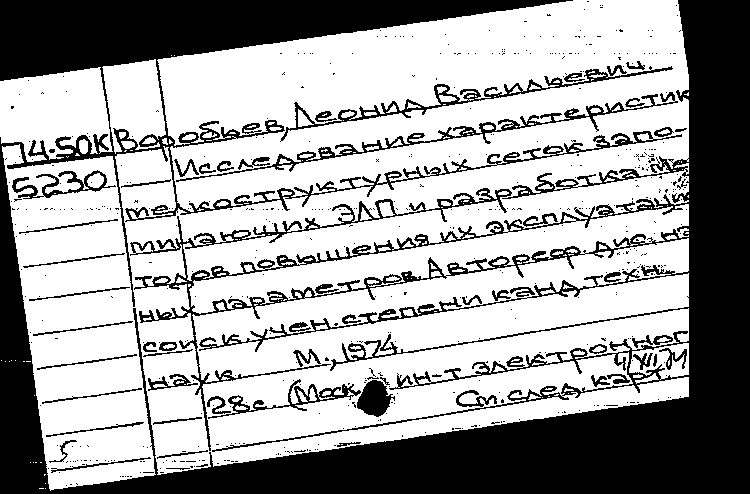 74-50К Воробьев, Леонид Васильевич.
5230 Исследование характеристик
мелкоструктурных сеток запо-
минающих ЭЛП и разработка ме
тодов повышения их эксплуатацио
ных параметров. Автореф. дис. на
соиск. учен. степени канд. техн.
наук. М., 1974.
28 с. (Моск. ин-т электронног
4/XII
См. след. карт.
5